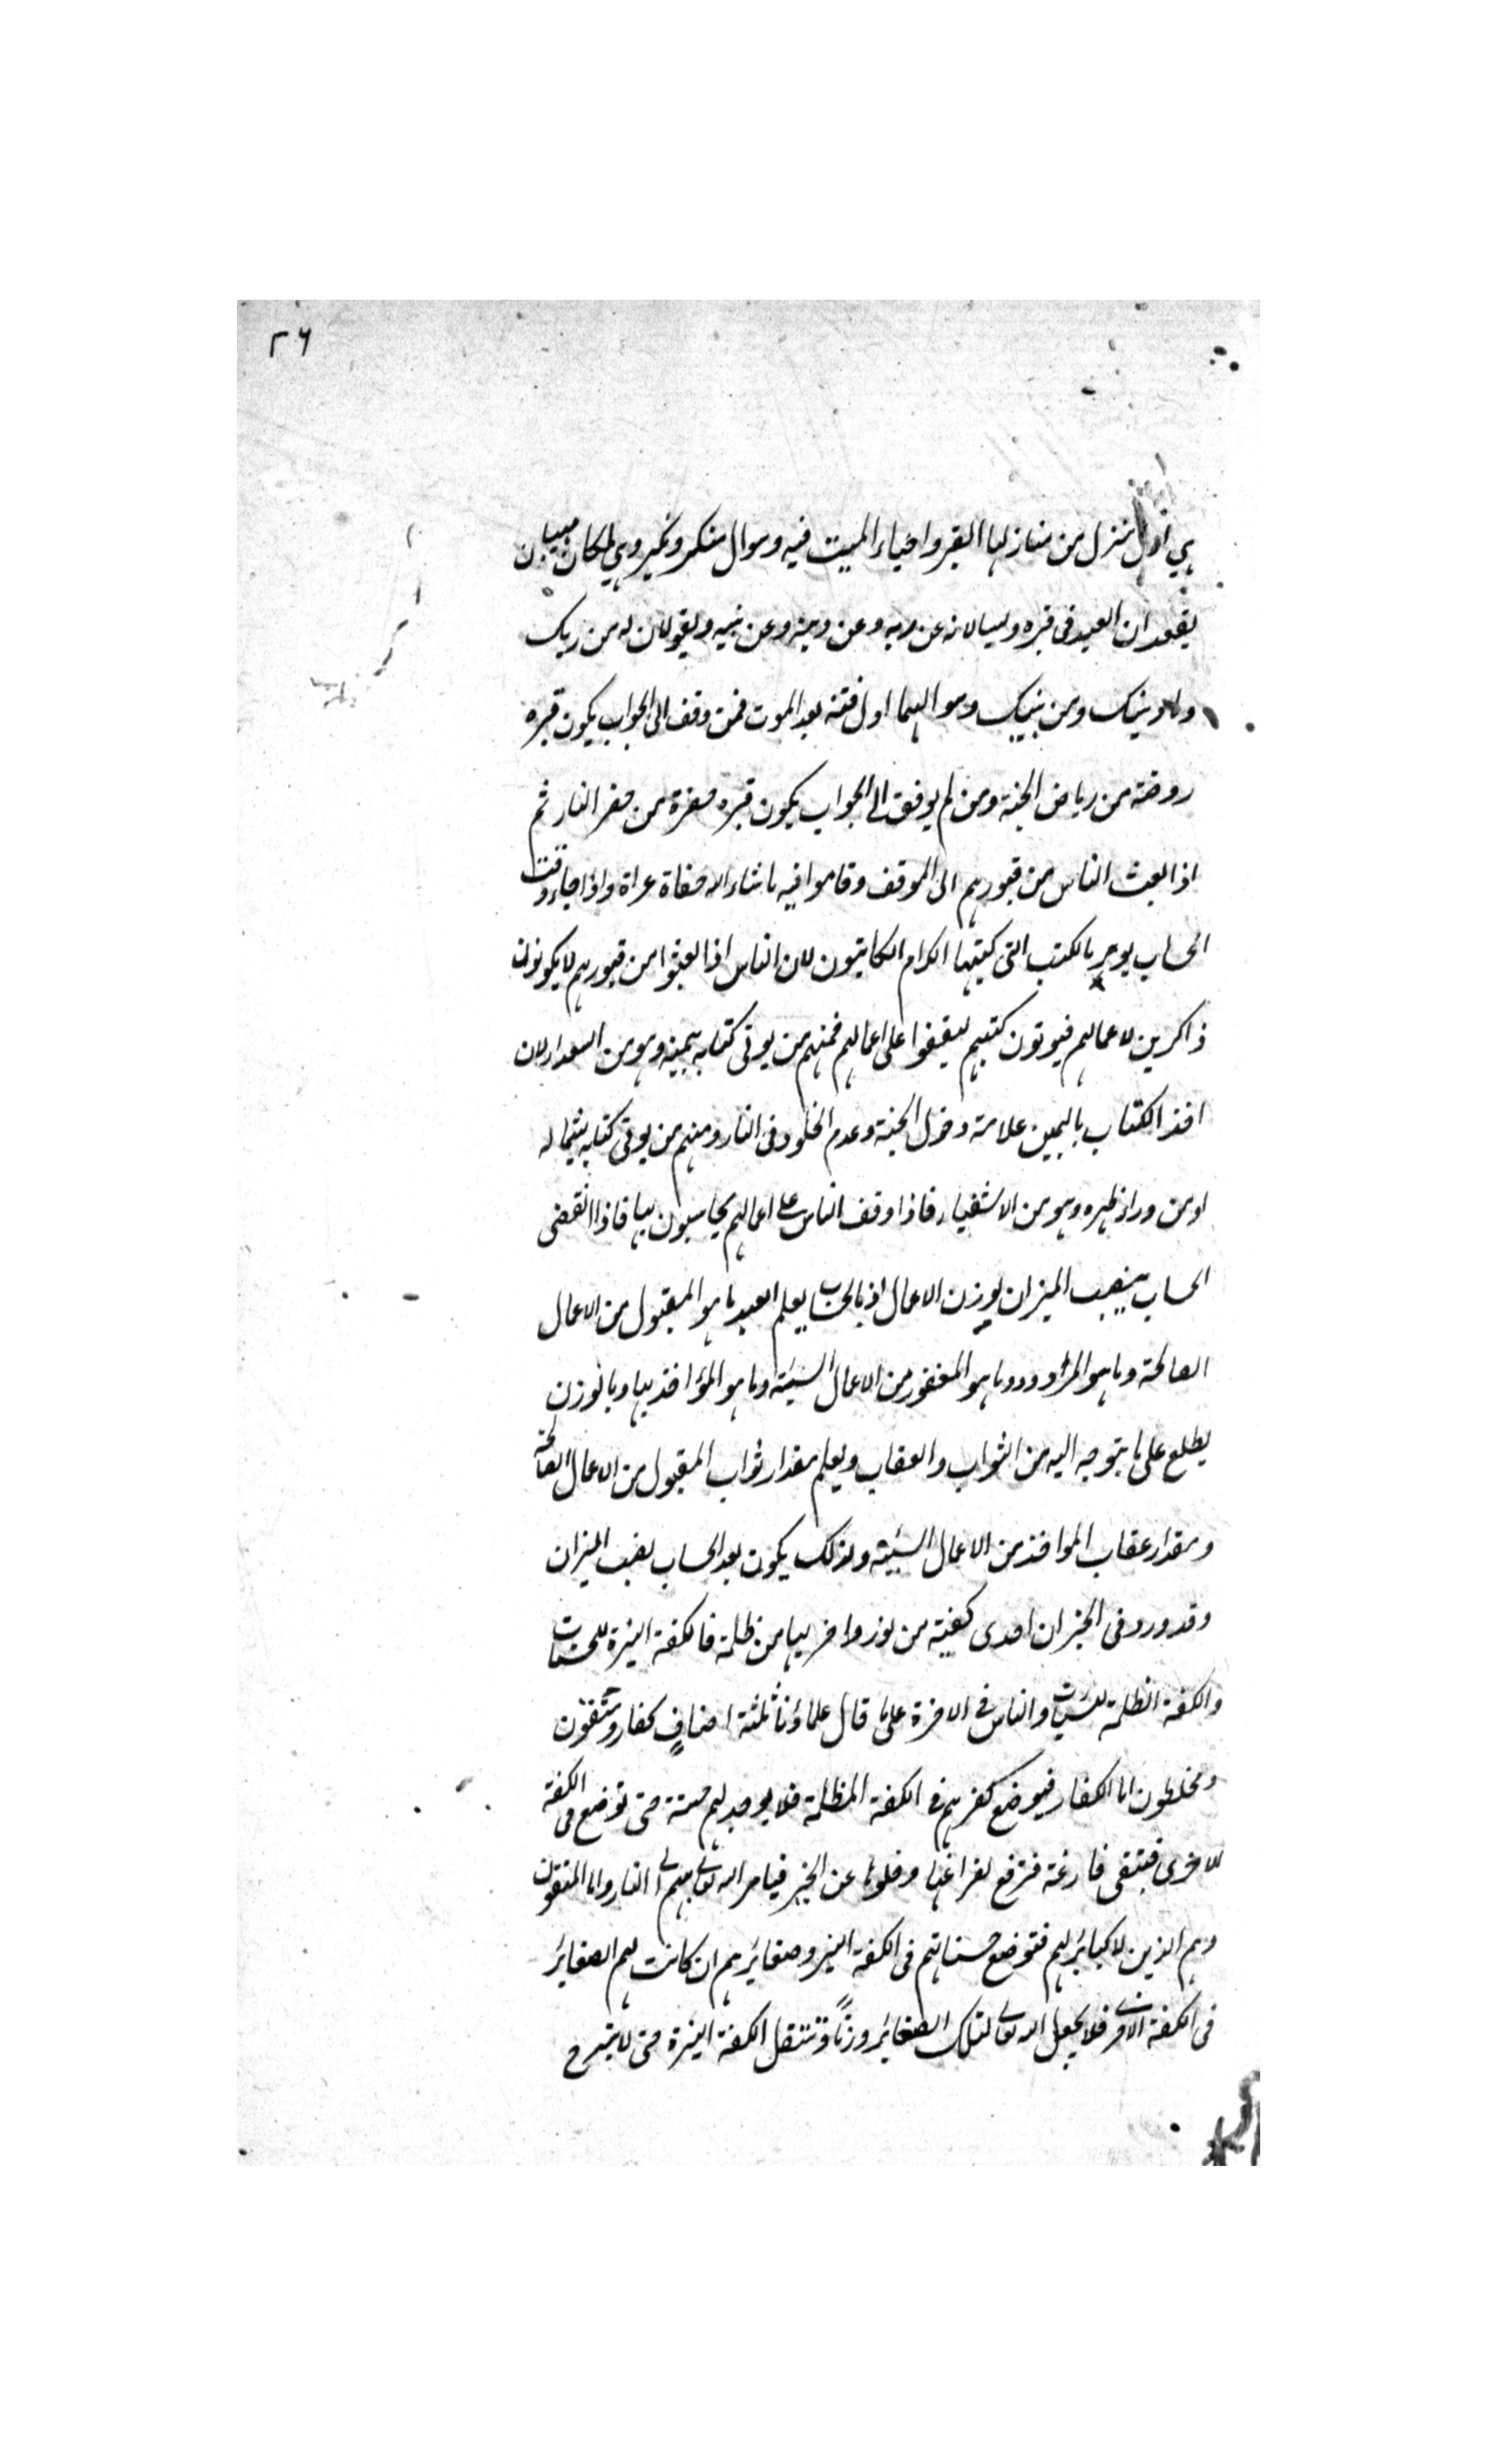 ٢٦
هي اول منزل من منازلها القبر واحياء الميت فيه وسوال منكر ونكير وهي ملكان مهيبان
يقعدان العبد في قبره ويسالانه عن ربه وعن دينه وعن نبيه ويقولان له من ربك
وما دينك ومن نبيك وسوالهما اول فتنة بعد الموت فمن وفق الى الجواب يكون قبره
روضة من رياض الجنة ومن لم يوفق الى الجواب يكون قبره حفرة من حفر النار ثم
اذا بعث الناس من قبورهم الى الموقف وقاموا فيه ما شاء الله حفاة عراة واذا جاء وقت
الحساب يومر بالكتب التي كتبها الكرام الكاتبون لان الناس اذا بعثوا من قبورهم لا يكونون
ذاكرين لاعمالهم فيوتون كتبهم ليقفوا على اعمالهم فمنهم من يوتى كتابه بيمينه وهو من السعداء لان
اخذ الكتاب باليمين علامة دخول الجنة وعدم الخلود في النار ومنهم من يوتى كتابه بشماله
او من وراء ظهره وهو من الاشقياء فاذا وقف الناس على اعمالهم يحاسبون بها فاذا انقضى
الحساب ينصب الميزان لوزن الاعمال اذ بالحساب يعلم العبد ما هو المقبول من الاعمال
الصالحة وما هو المردود وما هو المغفور من الاعمال السيئة وما هو المؤاخذ بها وبالوزن
يطلع على ما يتوجه اليه من الثواب والعقاب ويعلم مقدار ثواب المقبول من الاعمال الصالحة
ومقدار عقاب المواخذ من الاعمال السيئة ولذلك يكون بعد الحساب نصب الميزان
وقد ورد في الخبر ان احدى كفتيه من نور واخريها من ظلمة فالكفة النيرة للحسنات
والكفة الظلمة للسيئات والناس في الاخرة على ما قال علماؤنا ثلثة اصناف كفار ومتقون
ومخلطون اما الكفار فيوضع كفرهم في الكفة المظلمة فلا يوجد لهم حسنة حتى توضع في الكفة
الاخرى فتبقى فارغة فترفع لفراغها وخلوها عن الخير فيامر الله تعالى بهم الى النار واما المتقون
وهم الذين لا كبائر لهم فتوضع حسناتهم في الكفة النير وصغائرهم ان كانت لهم الصغائر
في الكفة الاخرى فلا يجعل الله تعالى لتلك الصغائر وزنًا وتثقل الكفة النيرة حتى لا تبرح